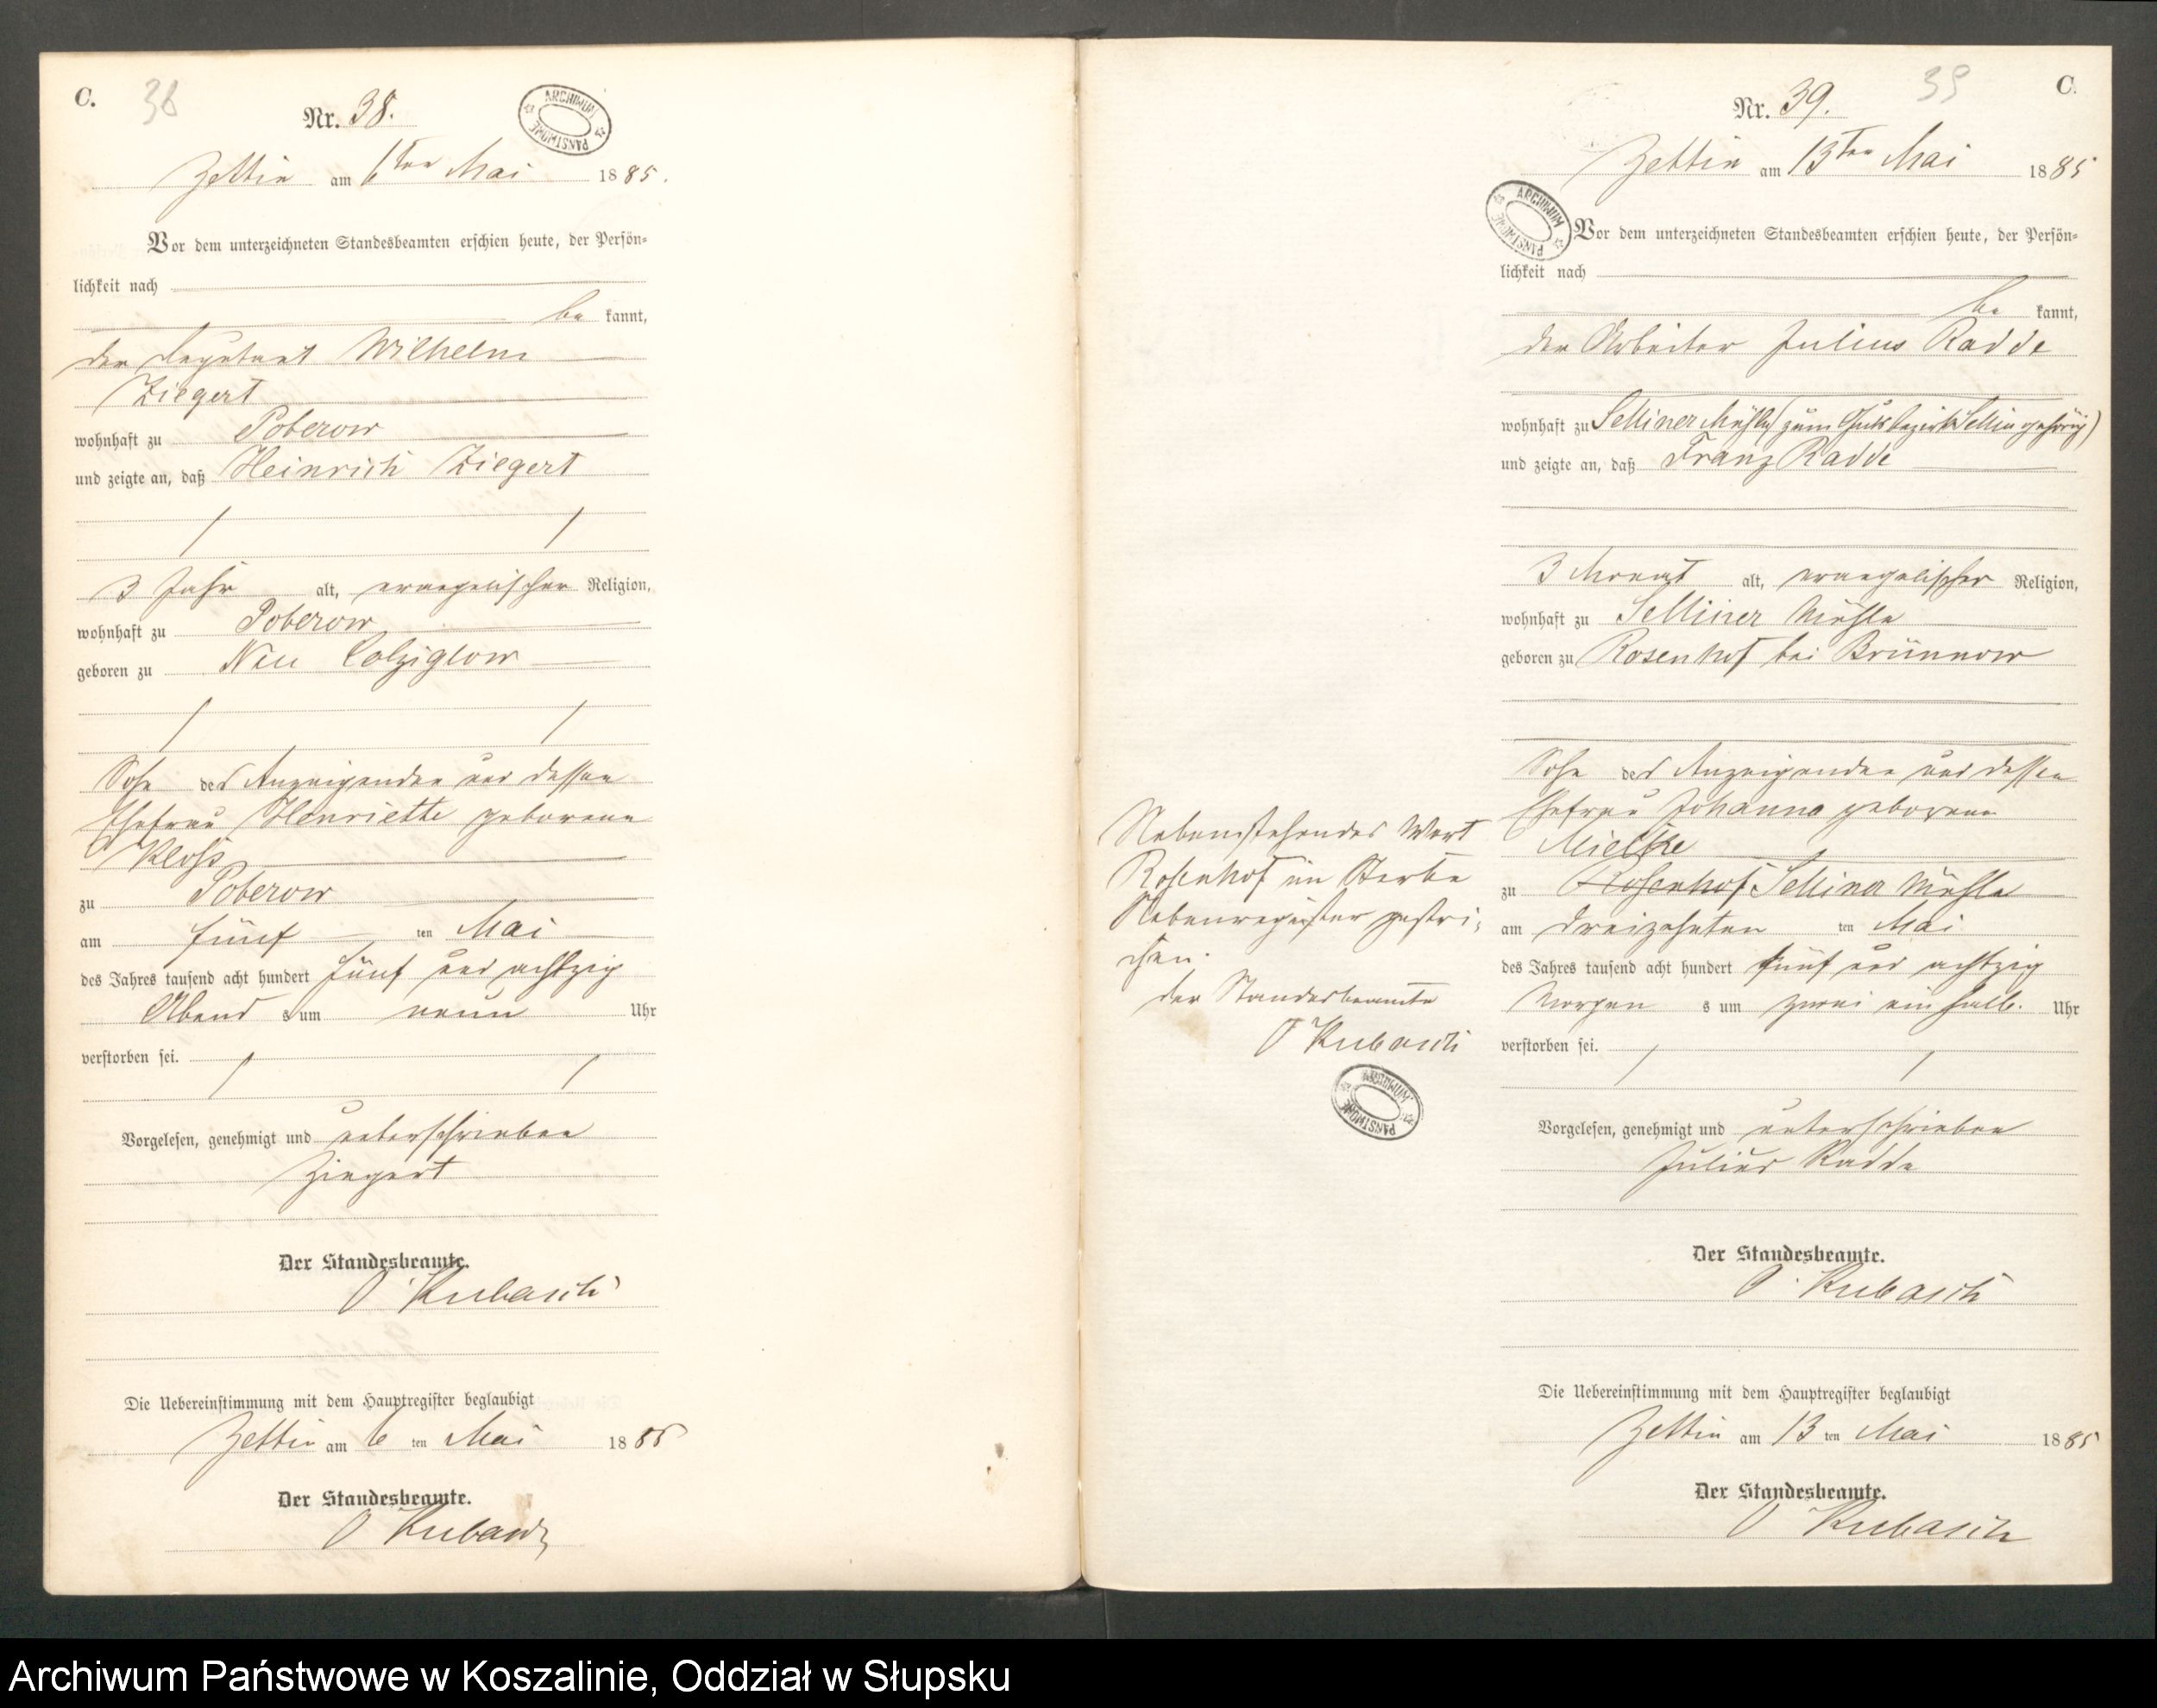 C. 38
Nr. 38.
ARCHIWUM PAŃSTWOWE
Zettin am 6ten Mai 1885.
Vor dem unterzeichneten Standesbeamten erschien heute, der Persön=
lichkeit nach
be kannt,
der Deputant Wilhelm
Ziegert
wohnhaft zu Poberow
und zeigte an, daß Heinrich Ziegert
3 Jahr alt, evangelischer Religion,
wohnhaft zu Poberow
geboren zu Neu Colziglow
Sohn des Anzeigenden und dessen
Ehefrau Henriette geborene
Kloß
zu Poberow
am fünf ten Mai
des Jahres tausend acht hundert fünf und achtzig
Abend s um neun Uhr
verstorben sei.
Vorgelesen, genehmigt und unterschrieben
Ziegert
Der Standesbeamte.
O Kubasch
Die Uebereinstimmung mit dem Hauptregister beglaubigt
Zettin am 6 ten Mai 1885
Der Standesbeamte.
O Kubasch
39 C.
Nr. 39.
Zettin am 13ten Mai 1885
ARCHIWUM PAŃSTWOWE
Vor dem unterzeichneten Standesbeamten erschien heute, der Persön=
lichkeit nach
be kannt,
der Arbeiter Julius Radde
wohnhaft zu Selliner Mühle (zum Gutsbezirk Sellin gehörig)
und zeigte an, daß Franz Radde
3 Monat alt, evangelischer Religion,
wohnhaft zu Selliner Mühle
geboren zu Rosenhof bei Brünnow
Sohn des Anzeigenden und dessen
Ehefrau Johanna geborene
Mielke
zu Rosenhof Selliner Mühle
am dreizehnten ten Mai
des Jahres tausend acht hundert fünf und achtzig
Morgen s um zwei ein halb. Uhr
verstorben sei.
Vorgelesen, genehmigt und unterschrieben
Julius Radde
Der Standesbeamte.
O. Kubasch
Die Uebereinstimmung mit dem Hauptregister beglaubigt
Zettin am 13 ten Mai 1885
Der Standesbeamte.
O Kubasch
Nebenstehendes Wort
Rosenhof im Sterbe
Nebenregister gestri=
chen.
Der Standesbeamte
O Kubasch
ARCHIWUM PAŃSTWOWE
Archiwum Państwowe w Koszalinie, Oddział w Słupsku